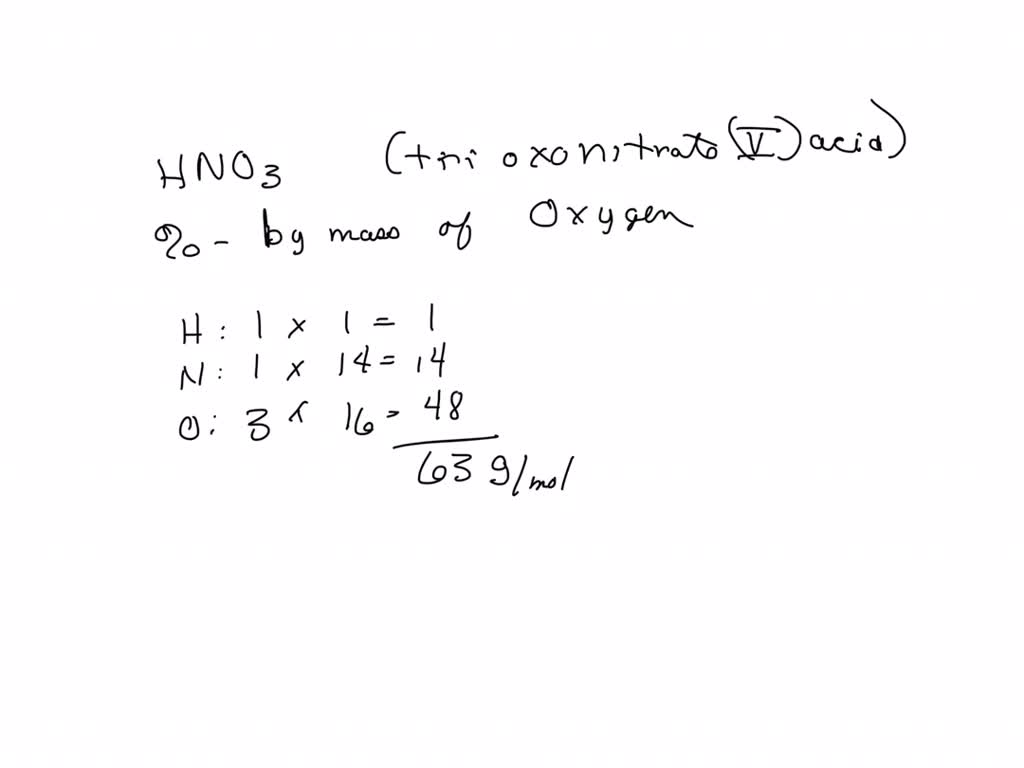 HNO3 (tri oxonitrato (V) acid)
% - by mass of Oxygen
H: 1 x 1 = 1
N: 1 x 14 = 14
O: 3 x 16 = 48
63 g/mol